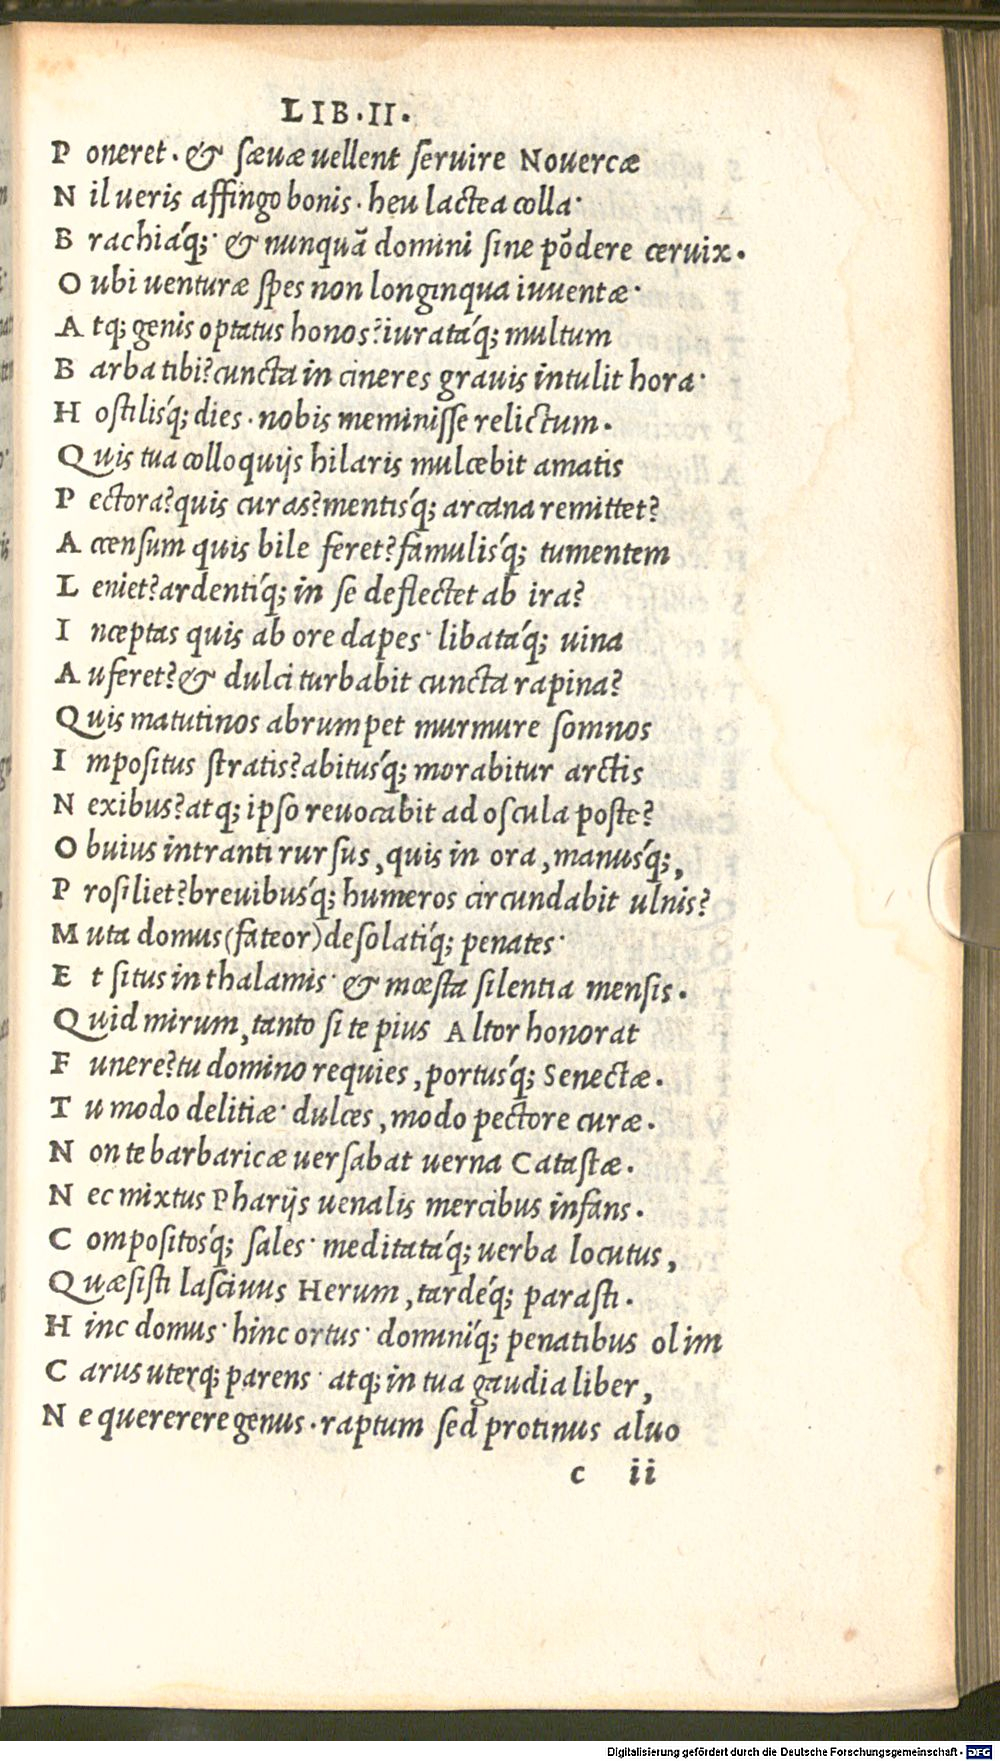 LIB.II.
P oneret. & sævæ uellent seruire Nouercæ
N il ueris affingo bonis. heu lactea colla·
B rachiáq;· & nunquã domini sine põdere ceruix.
O ubi uenturæ spes non longinqua iuuentæ·
A tq; genis optatus honos? iuratáq; multum
B arba tibi? cuncta in cineres grauis intulit hora·
H ostilisq́; dies. nobis meminisse relictum.
Q uis tua colloquijs hilaris mulcebit amatis
P ectora? quis curas? mentisq́; arcana remittet?
A ccensum quis bile feret? famulisq́; tumentem
L eniet? ardentiq́; in se deflectet ab ira?
I nceptas quis ab ore dapes· libatáq; uina
A uferet? & dulci turbabit cuncta rapina?
Q uis matutinos abrumpet murmure somnos
I mpositus stratis? abitusq́; morabitur arctis
N exibus? atq; ipso reuocabit ad oscula poste?
O buius intranti rursus, quis in ora, manusq́;,
P rosiliet? breuibusq́; humeros circundabit ulnis?
M uta domus (fateor) desolatiq́; penates·
E t situs in thalamis· & mœsta silentia mensis.
Q uid mirum, tanto si te pius Altor honorat
F unere? tu domino requies, portusq́; Senectæ.
T u modo delitiæ· dulces, modo pectore curæ.
N on te barbaricæ uersabat uerna Catastæ.
N ec mixtus Pharijs uenalis mercibus infans.
C ompositosq́; sales· meditatáq; uerba locutus,
Q uæsisti lasciuus Herum, tardéq; parasti.
H inc domus· hinc ortus· dominiq́; penatibus olim
C arus uterq; parens· atq; in tua gaudia liber,
N e quererere genus. raptum sed protinus aluo
c ii
Digitalisierung gefördert durch die Deutsche Forschungsgemeinschaft - DFG